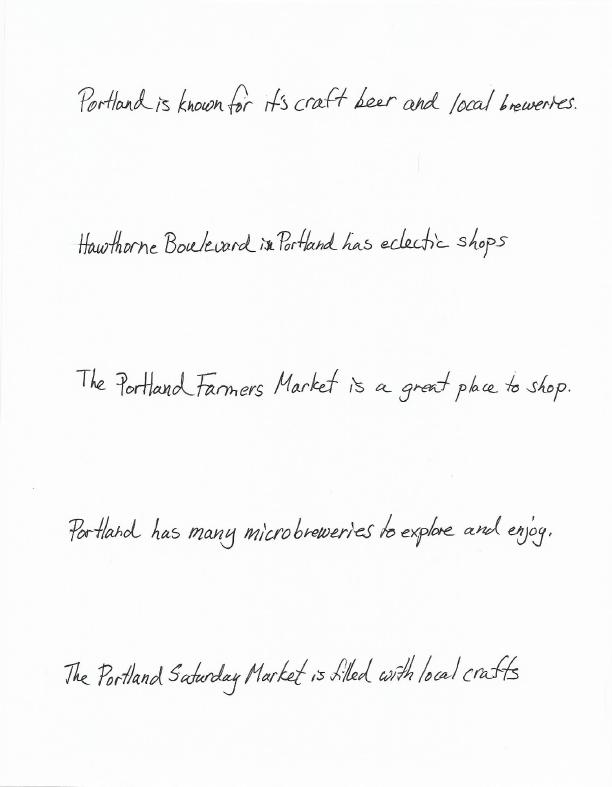 Portland is known for it's craft beer and local breweries.
Hawthorne Boulevard in Portland has eclectic shops
The Portland Farmers Market is a great place to shop.
Portland has many microbreweries to explore and enjoy.
The Portland Saturday Market is filled with local crafts